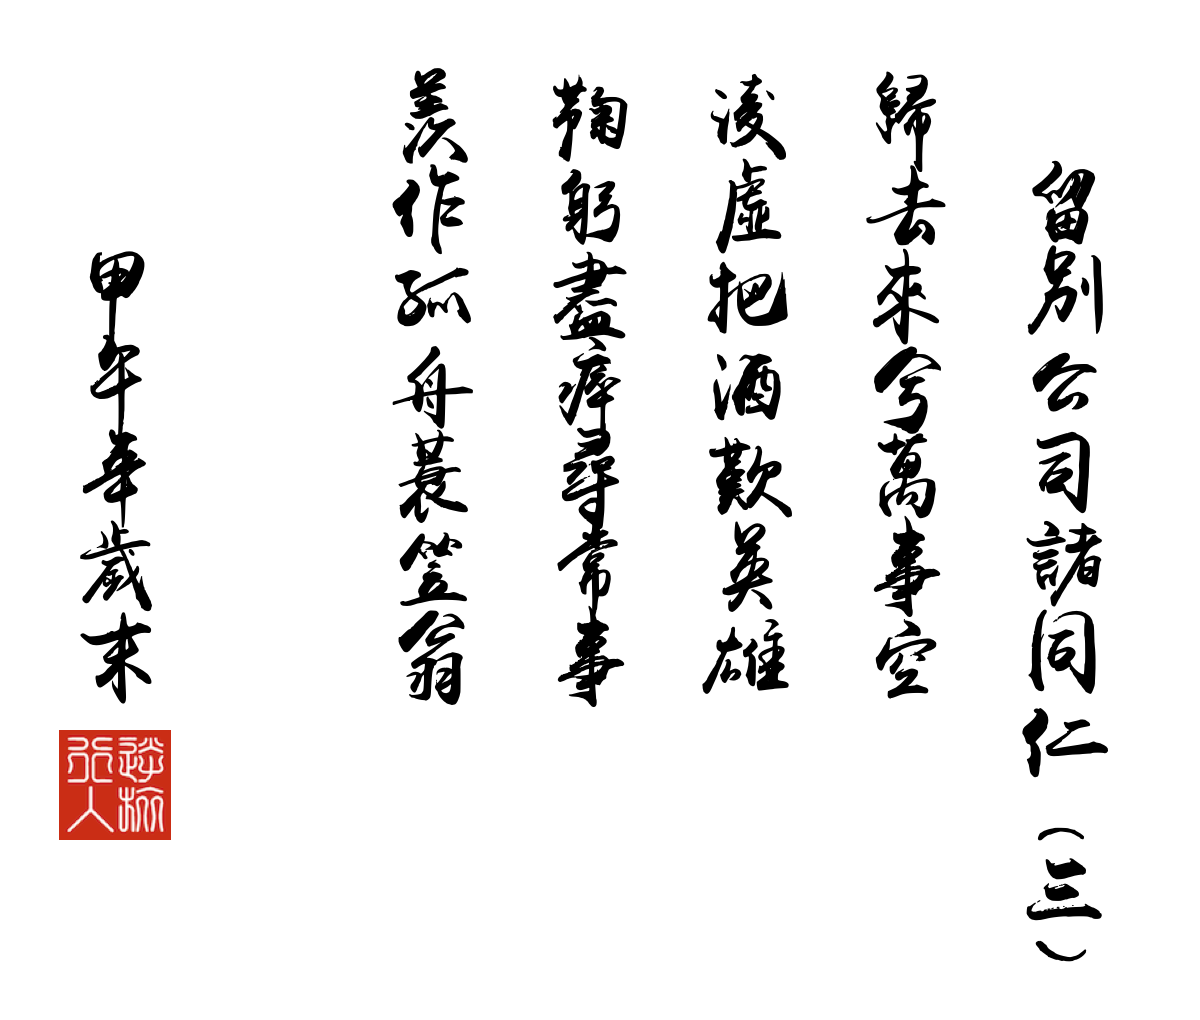 留別公司諸同仁（三）
歸去來兮萬事空
淩虛把酒歎英雄
鞠躬盡瘁尋常事
羨作孤舟蓑笠翁
甲午華歲末
行人